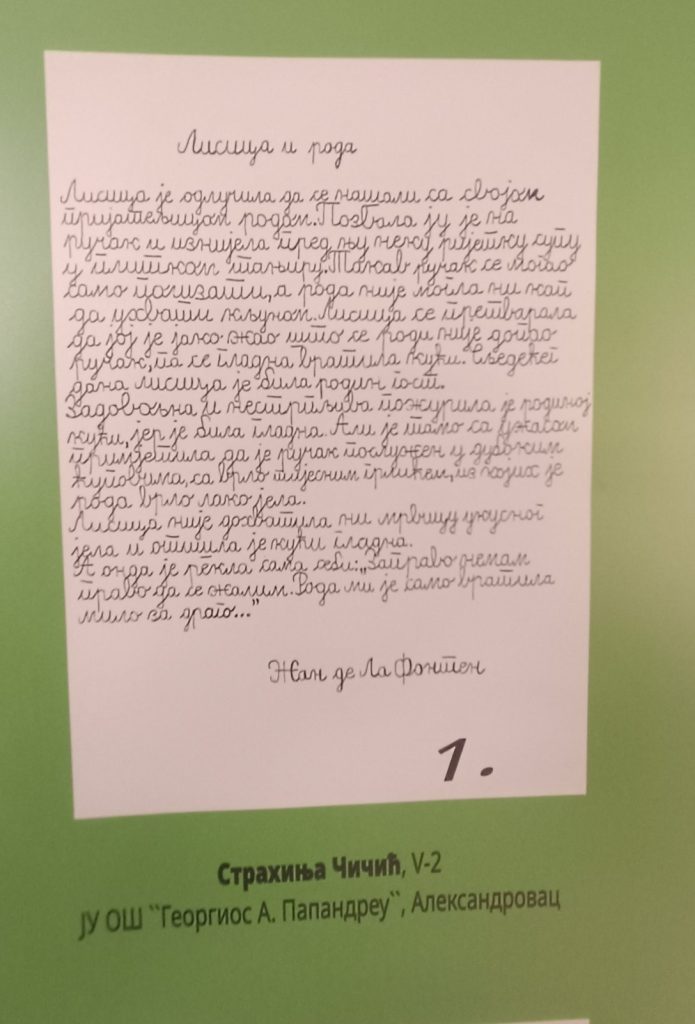 Лисица и рода
Лисица је одлучила да се нашали са својом
пријатељицом родом. Позвала ју је на
ручак и изнијела пред њу неку ријетку супу
у плитком тањиру. Такав ручак се могао
само полизати, а рода није могла ни кап
да ухвати кљуном. Лисица се претварала
да јој је јако жао што се роди није допао
ручак, па се гладна вратила кући. Сљедећег
дана лисица је била родин гост.
Задовољна и нестрпљива пожурила је родиној
кући, јер је била гладна. Али је тамо са ужасом
примјетила да је ручак послужен у дубоким
ћуповима, са врло тијесним грлићем, из којих је
рода врло лако јела.
Лисица није дохватила ни мрвицу укусног
јела и отишла је кући гладна.
А онда је рекла сама себи: „Заправо немам
право да се жалим. Рода ми је само вратила
мило за драго..."
Жан де Ла Фонтен
1.
Страхиња Чичић, V-2
ЈУ ОШ ``Георгиос А. Папандреу``, Александровац